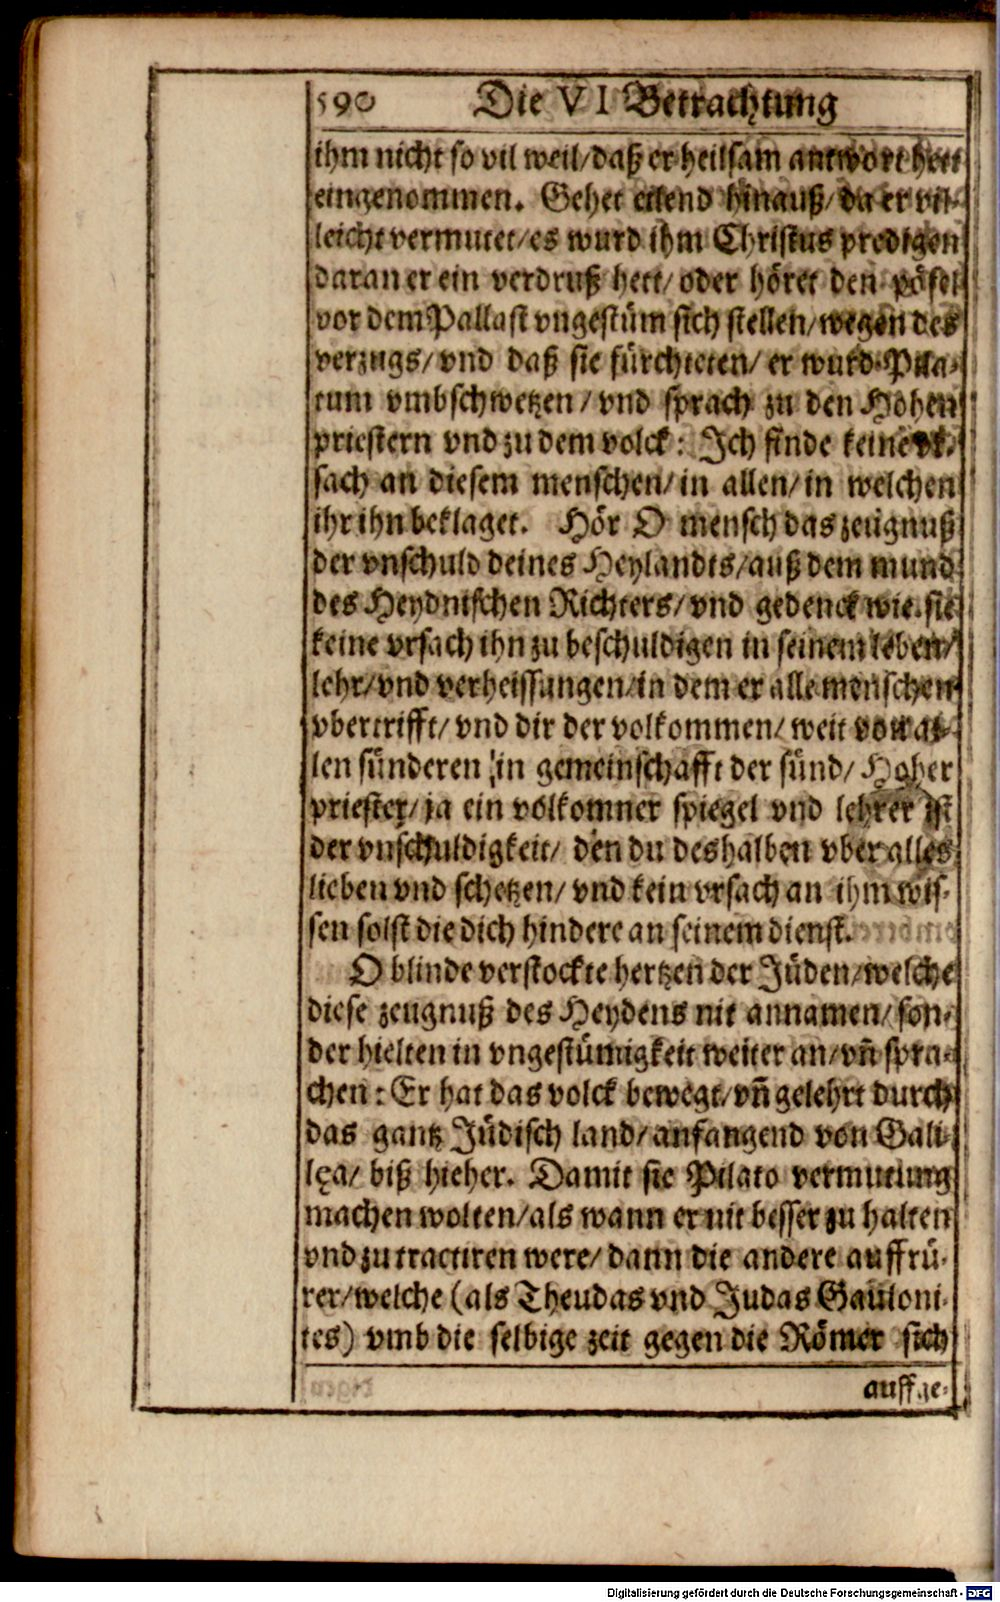 590 Die VI Betrachtung
ihm nicht so vil weil/daß er heilsam antwort hett
eingenommen. Gehet eilend hinauß/da er vil-
leicht vermutet/es wurd ihm Christus predigen
daran er ein verdruß hett/oder höret den pöfel
vor dem Pallast vngestüm sich stellen/wegen des
verzugs/vnd daß sie fürchteten/er wurd Pila-
tum vmbschwetzen/vnd sprach zu den Hohen
priestern vnd zu dem volck: Ich finde keine vr-
sach an diesem menschen/in allen/in welchen
ihr ihn beklaget. Hör O mensch das zeugnuß
der vnschuld deines Heylandts/auß dem mund
des Heydnischen Richters/vnd gedenck wie sie
keine vrsach ihn zu beschuldigen in seinem leben/
lehr/vnd verheissungen/in dem er alle menschen
vbertrifft/vnd dir der volkommen/weit von al-
len sünderen in gemeinschafft der sünd/Hoher
priester/ja ein volkomner spiegel vnd lehrer ist
der vnschuldigkeit/den du deshalben vber alles
lieben vnd schetzen/vnd kein vrsach an ihm wis-
sen solst die dich hindere an seinem dienst.
O blinde verstockte hertzen der Jüden/welche
diese zeugnuß des Heydens nit annamen/son-
der hielten in vngestümigkeit weiter an/vñ spra-
chen: Er hat das volck bewegt/vñ gelehrt durch
das gantz Jüdisch land/anfangend von Gali-
lęa/biß hieher. Damit sie Pilato vermutung
machen wolten/als wann er nit besser zu halten
vnd zu tractiren were/dann die andere auffrü-
rer/welche (als Theudas vnd Judas Gauloni-
tes) vmb die selbige zeit gegen die Römer sich
auffge-
Digitalisierung gefördert durch die Deutsche Forschungsgemeinschaft - DFG